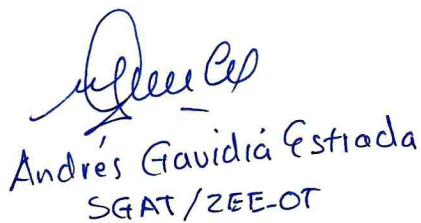 Andrés Gavidiá Estrada
SGAT/ZEE-OT